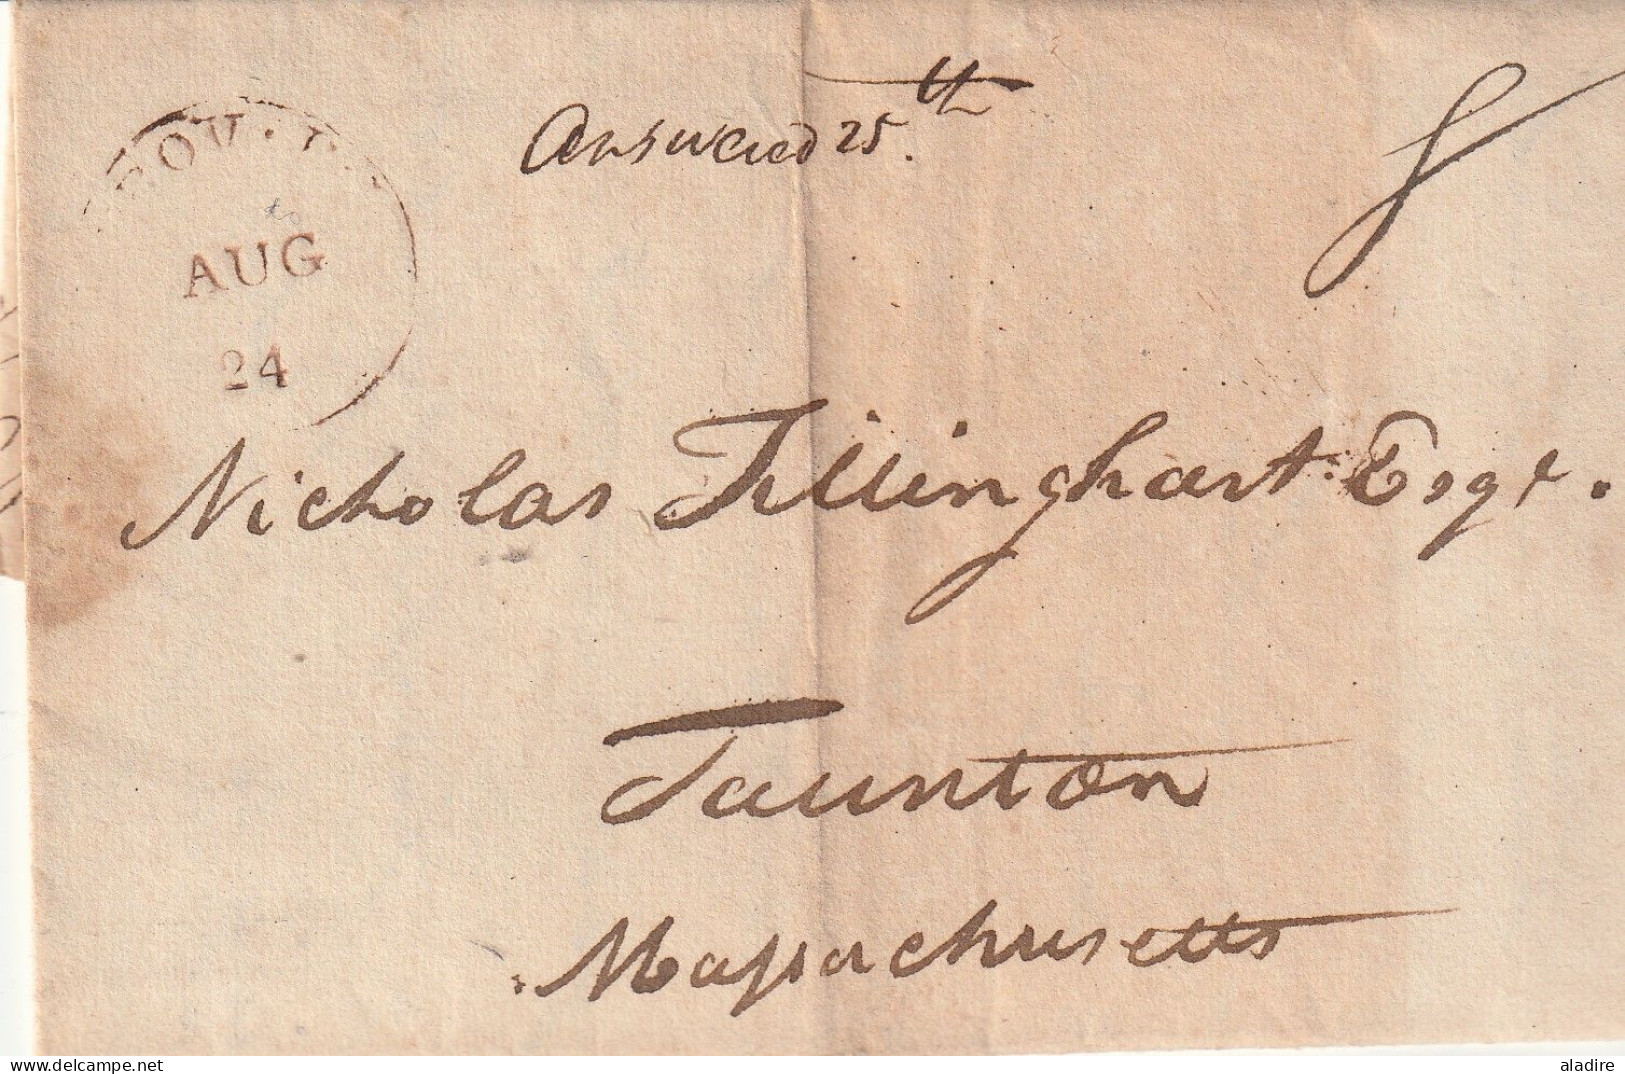 Answered 25th.
8
AUG
24
Nicholas Tillinghast Esqr.
Taunton
Massachusetts
aladire